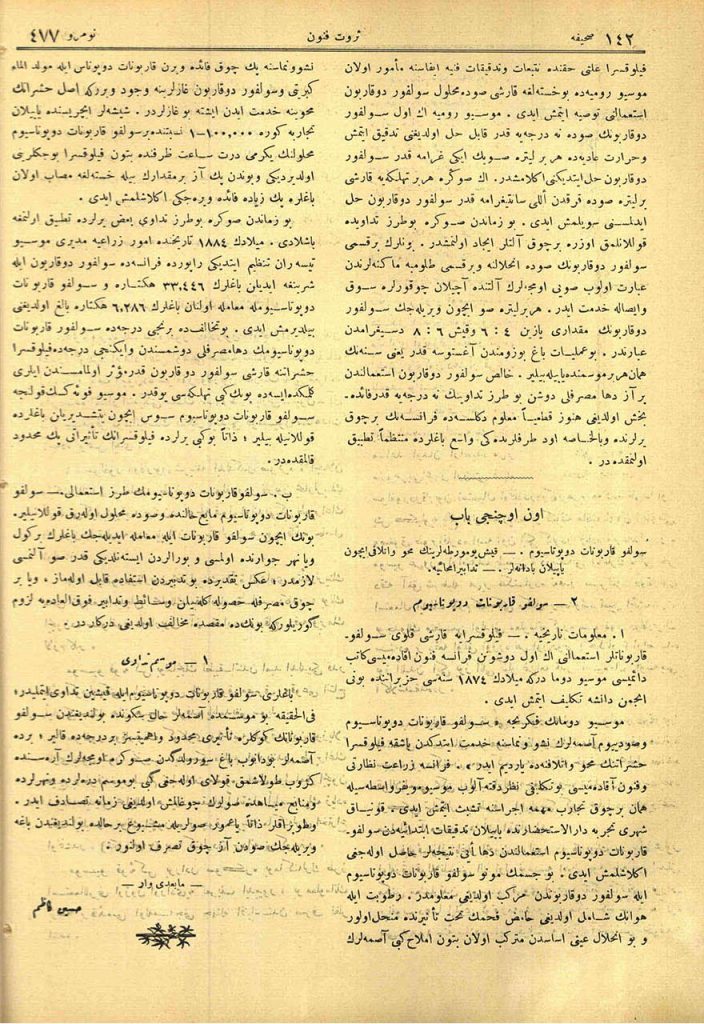 ١٤٢ صحيفه
ثروت فنون
نومرو ٤٧٧
فيلوقسرا علتى حقنده تتبعات وتدقيقات فنيه ايفاسنه مأمور اولان
موسيو روميه‌ده بوخسته‌لغه قارشى صوده محلول سولفور دوقاربون
استعمالنى توصيه ايتمش ايدى . موسيو روميه اك اول سولفور
دوقاربونك صوده نه درجه‌يه قدر قابل حل اولديغنى تدقيق ايتمش
وحرارت عاديه‌ده هر بر ليتره صويك ايكى غرامه قدر سولفور
دوقاربون حل ايتديكنى اكلامشدر. اك صوكره هر بر تهلكه‌يه قارشى
بر ليتره صوده قرقدن اللى سانتيغرامه قدر سولفور دوقاربون حل
ايدلمسنى سويلمش ايدى . بو زماندن صوكره بوطرز تداويده
قوللانلمق اوزره برچوق آلتلر ايجاد اولنمشدر . بونلرك برقسمى
سولفور دوقاربونك صوده انحلالنه وبرقسمى طلومبه ماكنه‌لرندن
عبارت اولوب صويى اومجه‌لرك آلتنده آچيلان چوقورلره سوق
وايصاله خدمت ايدر. هر بر ليتره صو ايچون ويريله‌جك سولفور
دوقاربونك مقدارى يازين ٤ : ٦ وقيش ٦ : ٨ دسيغرامدن
عبارتدر . بوعمليات باغ بوزومندن آغستوسه قدر يعنى سنه‌نك
همان هر بر موسمنده ياپيله‌بيلير . خالص سولفور دوقاربون استعمالندن
بر آز دها مصرفلى دوشن بو طرز تداوينك نه درجه‌يه قدر فائده.
بخش اولديغى هنوز قطعياً معلوم دكلسه‌ده فرانسه‌نك برچوق
يرلرنده وبالخاصه اود طرفلرنده‌كى واسع باغلرده منتظماً تطبيق
اولنمقده در .
اون اوچنجى باب
سولفو قاربونات دوپوتاسيوم . — قيش يومورطه‌لرينك محو واتلافى ايچون
ياپيلان بادانه‌لر . — تدابير امحائيه .
٢ — سولفو قاربونات دوپوتاسيوم
١ . معلومات تاريخيه . — فيلوقسرايه قارشى قلوى سولفو-
قاربوناتلر استعمالنى اك اول دوشونن فرانسه فنون آقاده‌ميسى كاتب
دائميسى موسيو دوما در كه ميلادك ١٨٧٤ سنه‌سى حزيراننده بونى
انجمن دانشه تكليف ايتمش ايدى .
موسيو دومانك فيكرنجه ، سولفو قاربونات دوپوتاسيوم
وصوديوم آصمه‌لرك نشو ونماسنه خدمت ايتدكدن باشقه فيلوقسرا
حشراتنك محو واتلافه‌ده يارديم ايدر . فرانسه زراعت نظارتى
وفنون آقاده‌ميسى بوتكليفى نظر دقته آلوب موسيو مونفر واسطه‌سيله
همان برچوق تجارب مهمه اجراسنه تشبث ايتمش ايدى . قونياق
شهرى تجربه دارالاستحضارنده ياپيلان تدقيقات ابتدائيه‌دن سولفو-
قاربونات دوپوتاسيوم استعمالندن دها اُتى نتيجه‌لر حاصل اوله‌جغى
اكلاشلمش ايدى . بو جسمك مونو سولفور قاربونات دوپوتاسيوم
ايله سولفور دوقاربوندن مركب اولديغى معلومدر . رطوبت ايله
هوانك شامل اولديغى حامض فحمك تحت تأثيرنده منحل اولور
و بو انحلال عينى اساسدن متركب اولان بتون املاح كبى آصمه‌لرك
نشوونماسنه پك چوق فائده ويرن قاربونات دوپوتاس ايله مولد الماء
كبريتى وسولفور دوقاربون غازلرينه وجود ويرر كه اصل حشراتك
محوينه خدمت ايدن ايشته بو غازلردر . شيشه‌لر ايچريسنده ياپيلان
تجاربه كوره ١-١٠٠,٠٠٠ نسبتنده برسولفو قاربونات دوپوتاسيوم
محلولنك يكرمى درت ساعت ظرفنده بتون فيلوقسرا بوجكلرينى
اولديرديكى وبوندن پك آز برمقدارك بيله خسته‌لغه مصاب اولان
باغلره پك زياده فائده ويره‌جكى اكلاشلمش ايدى .
بو زماندن صوكره بوطرز تداوى بعض يرلرده تطبيق اولنمغه
باشلادى . ميلادك ١٨٨٤ تاريخنده امور زراعيه مديرى موسيو
تيسه‌ران تنظيم ايتديكى راپورده فرانسه‌ده سولفور دوقاربون ايله
شرينغه ايديلن باغلرك ٣٣,٤٤٦ هكتاره و سولفو قاربونات
دوپوتاسيومله معامله اولنان باغلرك ٦,٢٨٦ هكتاره بالغ اولديغنى
بيلديرمش ايدى . بوتخالفده برنجى درجه‌ده سولفور قاربونات
دوپوتاسيومك دها مصرفلى دوشمسندن وايكنجى درجه‌ده فيلوقسرا
حشراتنه قارشى سولفور دوقاربون قدر مؤثر اولمامسندن ايلرى
كلمكده ايسه‌ده بونك كبى تهلكه‌سى يوقدر . موسيو فوئه‌ك قولنجه
سولفو قاربونات دوپوتاسيوم سوس ايچون يتشديريلن باغلرده
قوللانيله بيلير ؛ ذاتاً بوكبى يرلرده فيلوقسرانك تأثيراتى پك محدود
قالمقده‌در .
ب . سولفو قاربونات دوپوتاسيومك طرز استعمالى . — سولفو
قاربونات دوپوتاسيوم مايع حالنده وصوده محلول اوله‌رق قوللانيلير.
بونك ايچون سولفو قاربونات ايله معامله ايديله‌جك باغلرك بركول
ويا نهر جوارنده اولمسى و بورالردن ايستنلديكى قدر صو آلنمسى
لازمدر ؛ عكس تقديرده بو تدبيردن استفاده قابل اوله‌ماز ، ويا بر
چوق مصرفله حصوله كلن وسائط وتدابير فوق العاده‌يه لزوم
كورولور كه بونك‌ده مقصده مخالف اولديغى دركار در .
١ — موسم تداوى
باغلرى سولفو قاربونات دوپوتاسيوم ايله قيشين تداوى ايتمليدر؛
فى الحقيقه بو موسمنده آصمه‌لر حال سكونده بولنديغندن سولفو
قاربوناتك كوكلره تأثيرى محدود واهميتسز بر درجه‌ده قالير ؛ برده
آصمه‌لر بودانوب باغ سورولدكدن صوكره اومجه‌لرك آره‌سنده
كزوب طولاشمق قولاى اوله‌جغى كبى بوموسم دره‌لرده ونهرلرده
ومنابع مياهده صولرك چوغالمش اولديغى زمانه تصادف ايدر .
وطوپراقلر ذاتاً ياغمور صولريله مشبوع برحالده بولنديغندن باغه
ويريله‌جك صودن آز چوق تصرف اولنور .
— مابعدى وار —
حسين كاظم